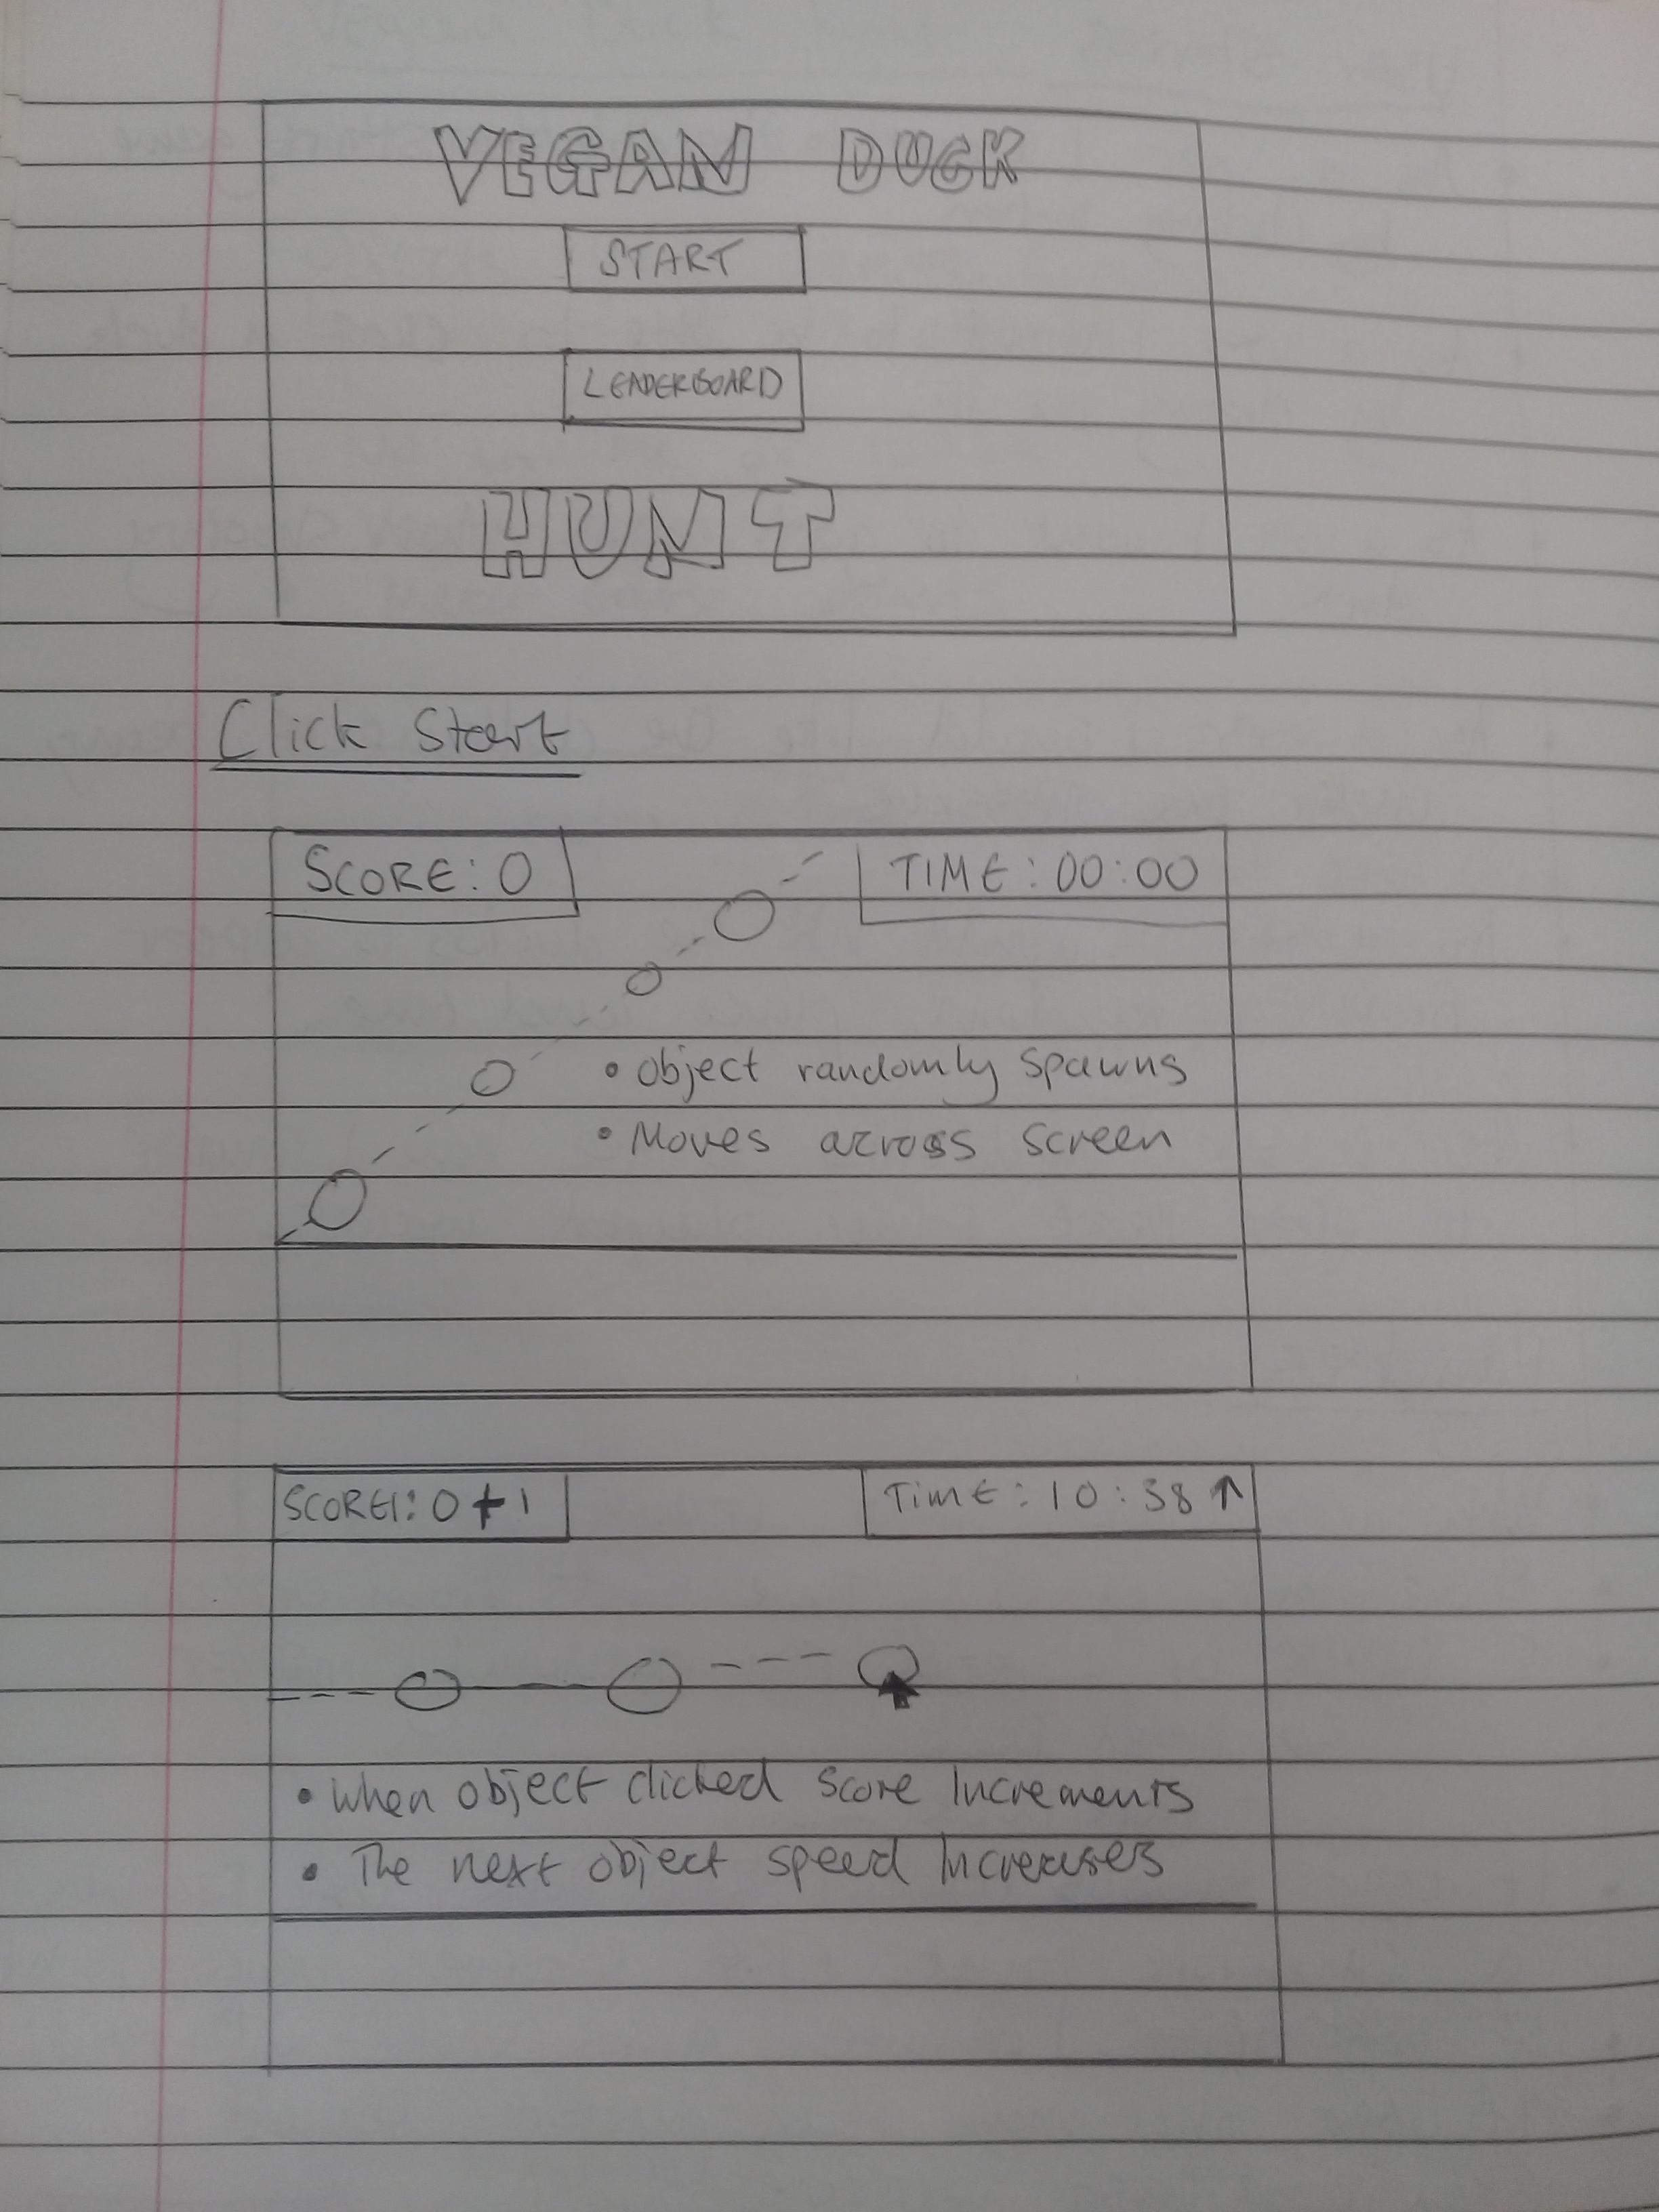 VEGAN DUCK
START
LEADERBOARD
HUNT
Click Start
SCORE: 0 TIME: 00:00
• Object randomly spawns
• Moves across screen
SCORE: 0 + 1 TIME: 10:38 ↑
• When object clicked score increments
• The next object speed increases